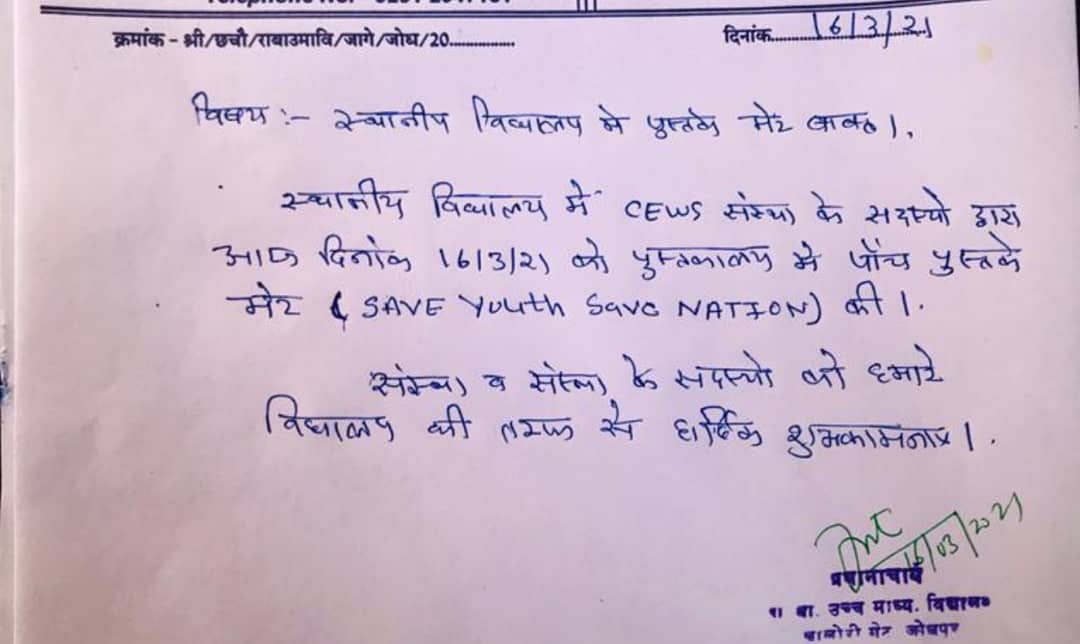 क्रमांक - श्री/छचौ/राबाउमावि/जागे/जोध/20................
दिनांक............16/3/21
विषय :- स्थानीय विद्यालय मे पुस्तके भेंट बाबत।
स्थानीय विद्यालय में CEWS संस्था के सदस्यो द्वारा
आज दिनांक 16/3/21 को पुस्तकालय मे पाँच पुस्तके
भेंट ( SAVE Youth Save NATION) की।
संस्था व संस्था के सदस्यो को हमारे
विद्यालय की तरफ से हार्दिक शुभकामनाए।
16/03/2021
प्रधानाचार्य
रा बा. उच्च माध्य. विद्यालय
जालोरी गेट जोधपुर